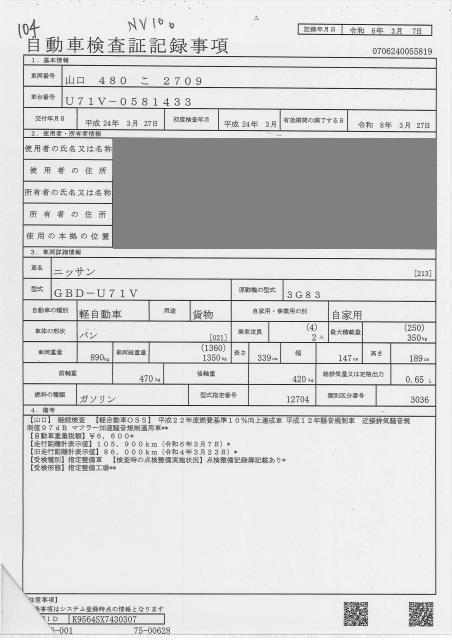 104
NV100
記録年月日 令和 6年 3月 7日
自動車検査証記録事項
0706240055819
1. 基本情報
車両番号 山口 480 こ 2709
車台番号 U71V-0581433
交付年月日 平成 24年 3月 27日 初度検査年月 平成 24年 3月 有効期間の満了する日 令和 8年 3月 27日
2. 使用者・所有者情報
使用者の氏名又は名称
使用者の住所
所有者の氏名又は名称
所有者の住所
使用の本拠の位置
3. 車両詳細情報
車名 ニッサン [213]
型式 GBD-U71V 原動機の型式 3G83
自動車の種別 軽自動車 用途 貨物 自家用・事業用の別 自家用
車体の形状 バン [021] 乗車定員 (4) 2人 最大積載量 (250) 350kg
車両重量 890kg 車両総重量 (1360) 1350kg 長さ 339cm 幅 147cm 高さ 189cm
前軸重 470kg 後軸重 420kg 総排気量又は定格出力 0.65 L
燃料の種類 ガソリン 型式指定番号 12704 類別区分番号 3036
4. 備考
【山口】 継続検査 【軽自動車OSS】 平成22年度燃費基準10%向上達成車 平成12年騒音規制車 近接排気騒音規
制値97dB マフラー加速騒音規制適用車**
【自動車重量税額】¥6,600*
【走行距離計表示値】105,900km(令和6年3月7日)*
【旧走行距離計表示値】86,000km(令和4年3月23日)*
【受検種別】指定整備車 【検査時の点検整備実施状況】点検整備記録簿記載あり*
【受検形態】指定整備工場**
注意事項】
事項はシステム登録時点の情報となります
ID K9564SX7430307
-001 75-00628